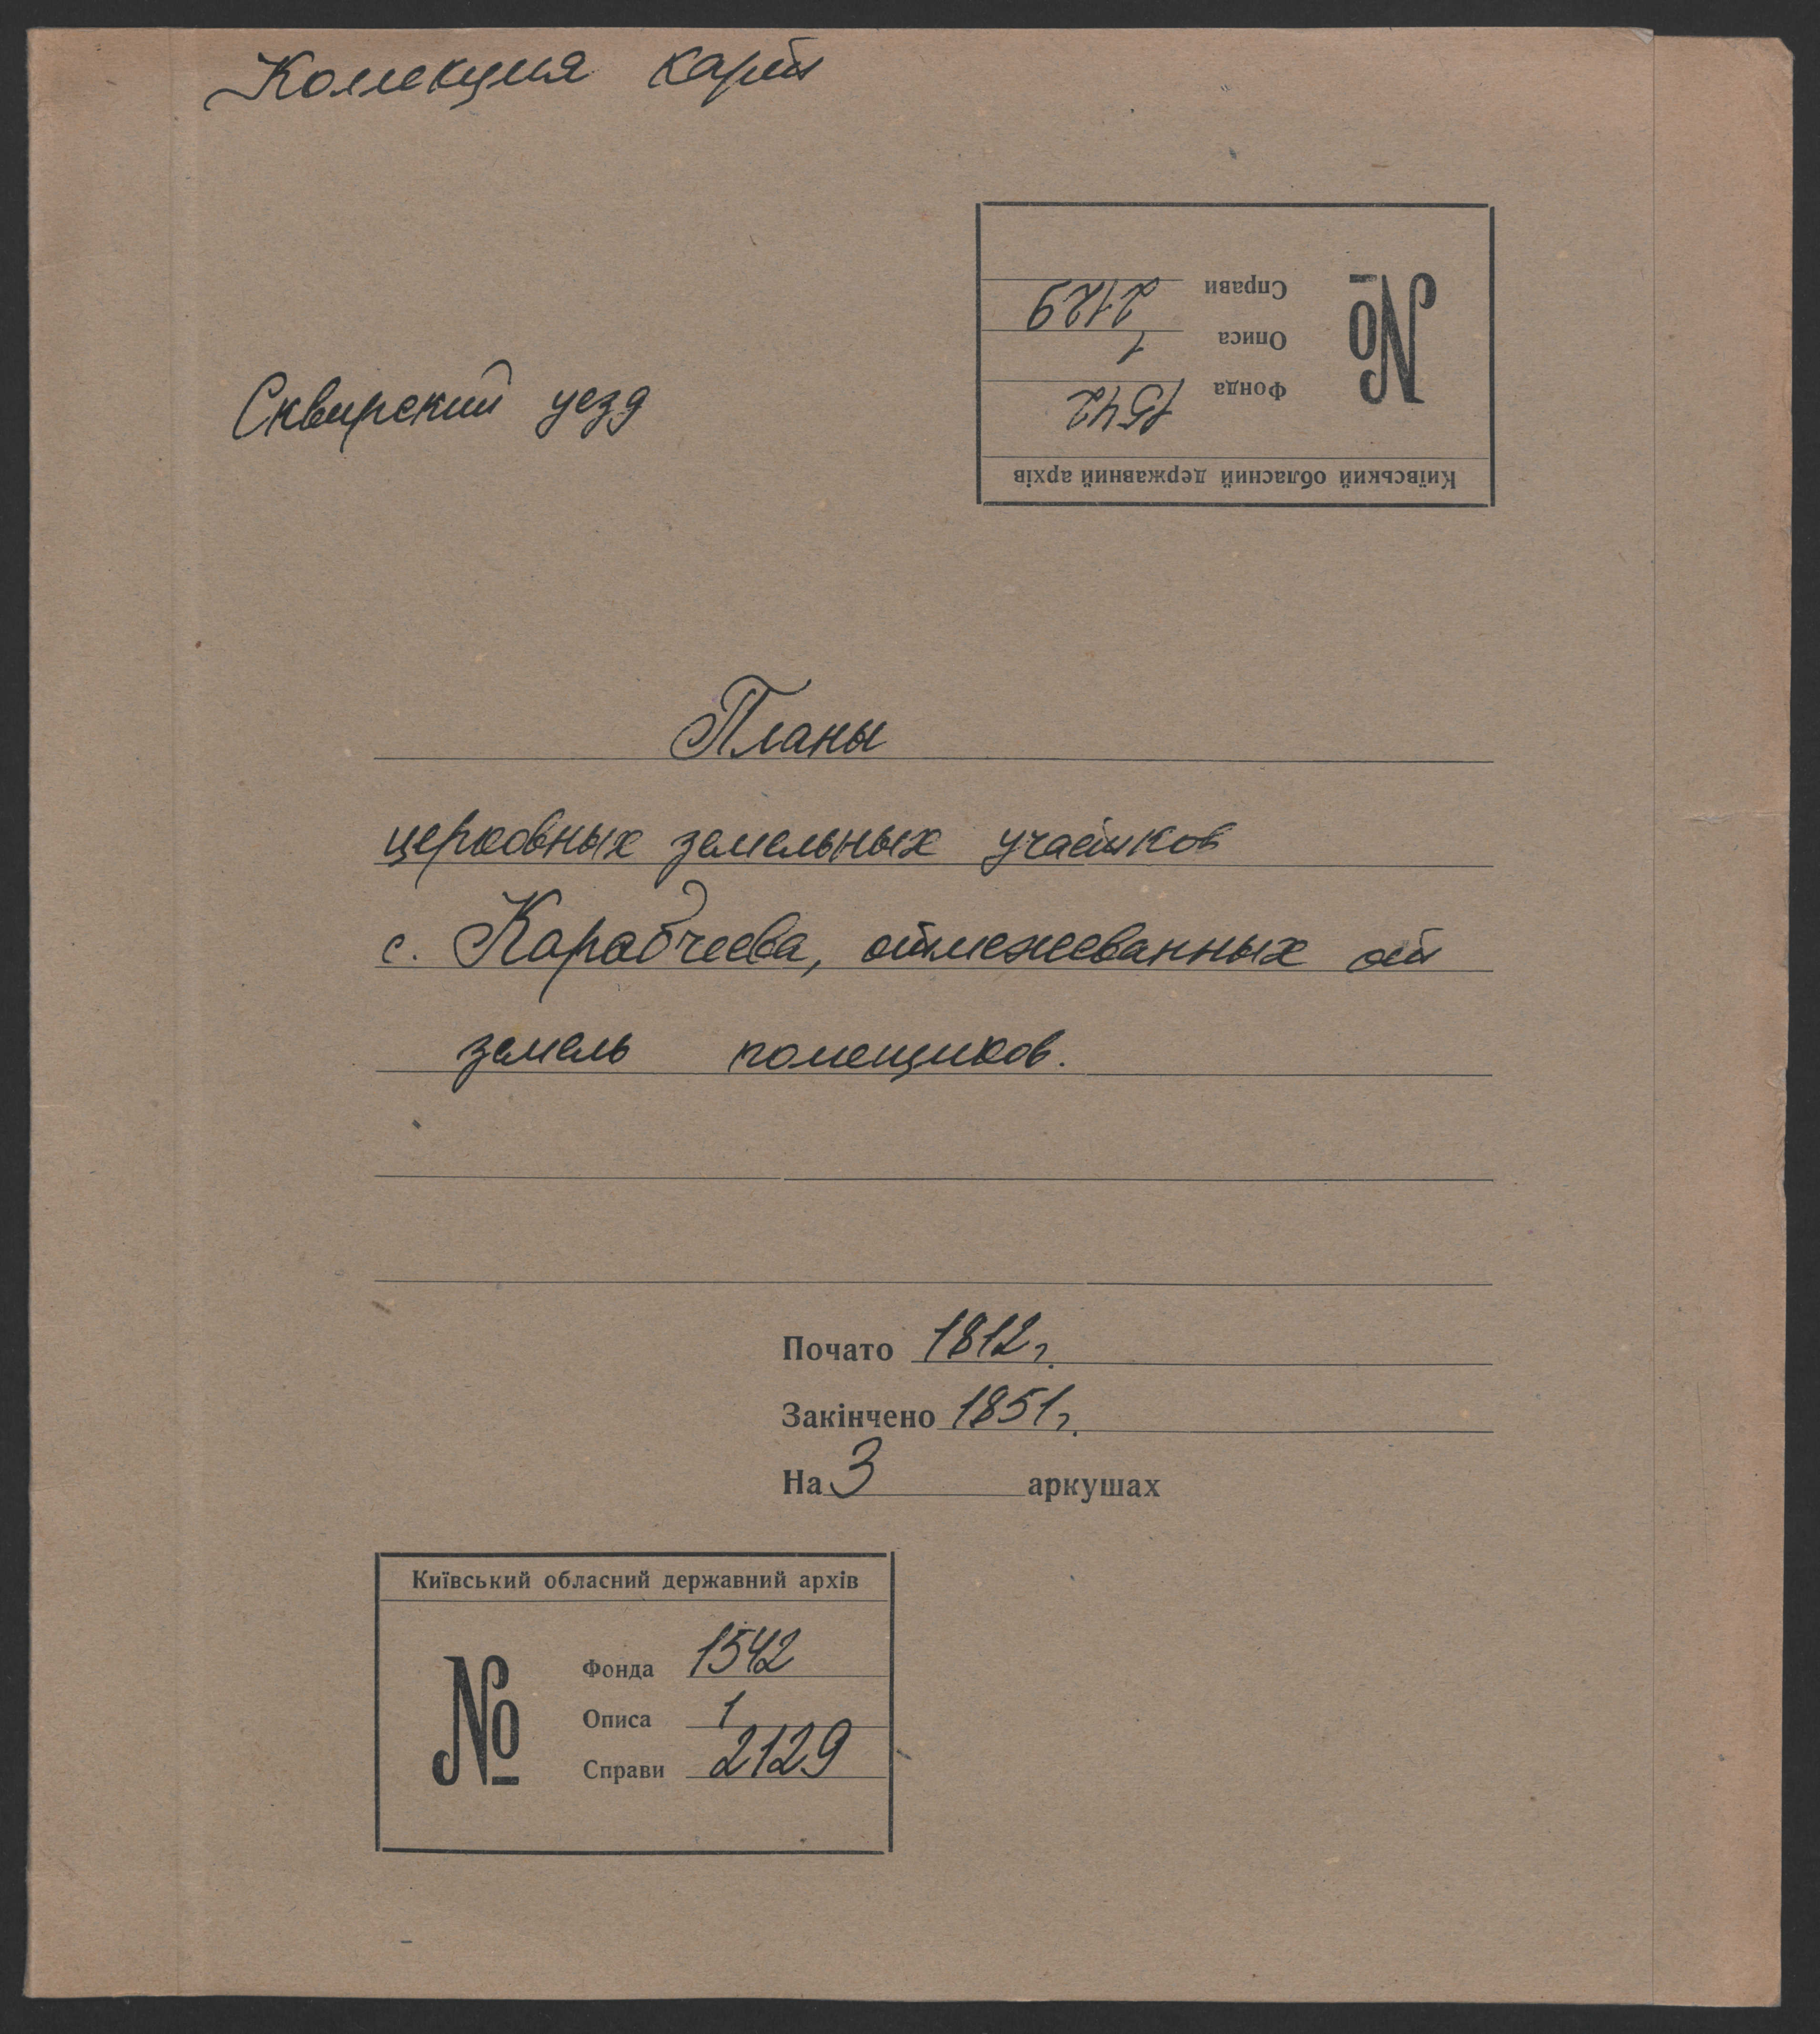 Коллекция карт
Справи 2129
Описа 1
Фонда 1542
№
Київський обласний державний архів
Сквирский уезд
Планы
церковных земельных участков
с. Карабчеева, отмежеванных от
земель помещиков.
Почато 1812 г.
Закінчено 1851 г.
На 3 аркушах
Київський обласний державний архів
№
Фонда 1542
Описа 1
Справи 2129